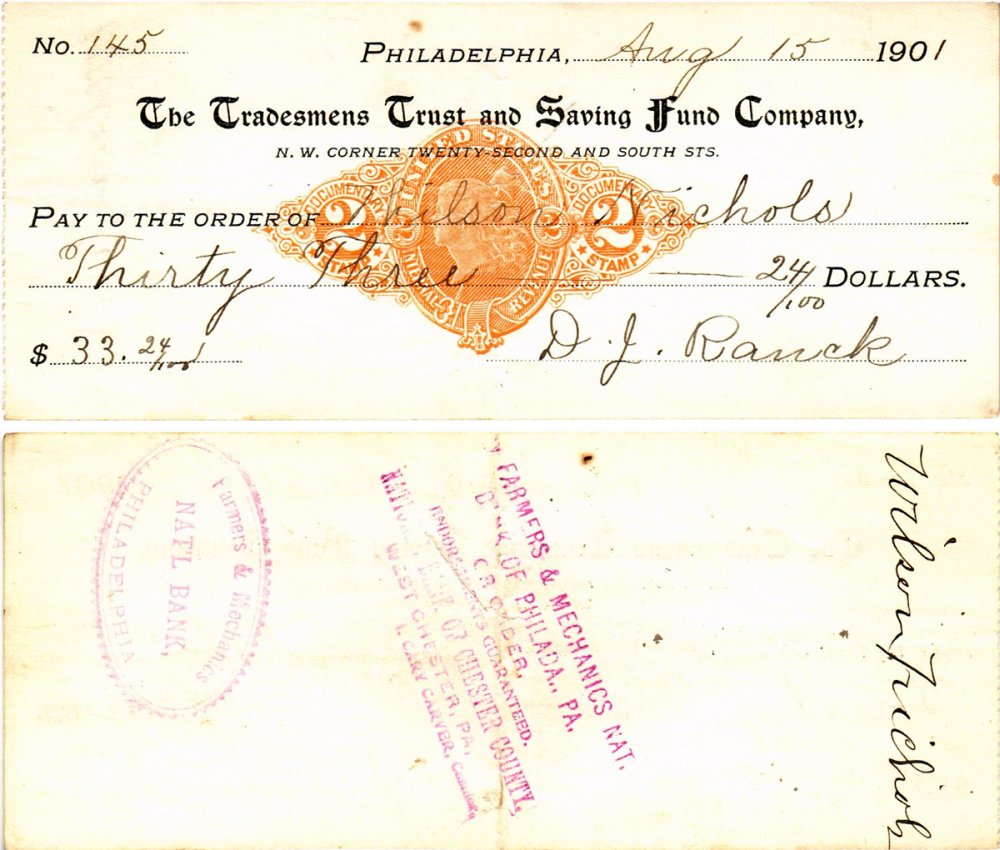 No. 145
PHILADELPHIA, Aug 15 1901
The Tradesmens Trust and Saving Fund Company,
N. W. CORNER TWENTY-SECOND AND SOUTH STS.
UNITED STATES
DOCUMENTARY 2 STAMP
2 2
DOCUMENTARY 2 STAMP
INTERNAL REVENUE
PAY TO THE ORDER OF Wilson Nichols
Thirty Three 24/100 DOLLARS.
$ 33. 24/100
D. J. Ranck
Farmers & Mechanics
NAT'L BANK,
PHILADELPHIA
FARMERS & MECHANICS NAT.
BANK OF PHILADA., PA.
OR ORDER,
ENDORSEMENTS GUARANTEED.
NATIONAL BANK OF CHESTER COUNTY,
WEST CHESTER, PA.
I. CARY CARVER, Cashier
Wilson Nichols